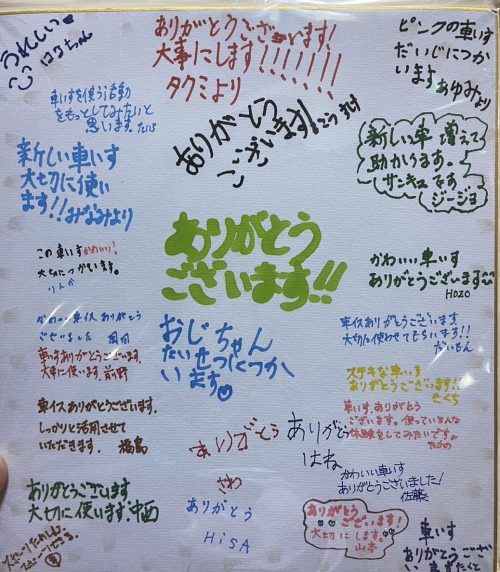 うれしい
ロクちゃん
ありがとうございます!
大事にします!!!!!!!
タクミより
ピンクの車いす
だいじにつか
います
あゆみより
車いすを使う活動
をもっとしてみたいと
思います。
ありがとう
ございます!
新しい車いす
大切に使い
ます!!みなみより
新しい車増えて
助かります。
サンキュです
ジージョ
ありがとう
ございます!!
この車いすかわいい!
大切につかいます。
りんか
かわいい車いす
ありがとうございます
HOZO
かわいい車イスありがとう
ございました
おじちゃん
たいせつにつか
います
車イスありがとうございます。
大切に使わせてもらいます!!
だいもん
車いすありがとうございます。
大事に使います。前野
ステキな車いす
ありがとうございます!!
さくら
車イスありがとうございます。
しっかりと活用させて
いただきます。福島
車いす、ありがとう
ございます。使っていろんな
体験をしてみたいです。
たかの
ありがとう
さわ
ありがとう
はね
かわいい車いす
ありがとうございました!
佐藤
ありがとうございます
大切に使います。中西
ありがとう
HiSA
ありがとう
ございます!
大切にします。
山本
車いす
ありがとうござい
ます